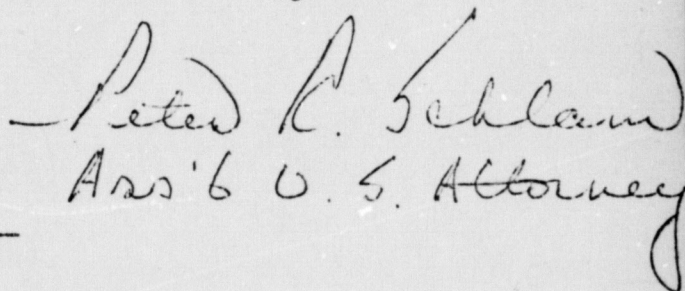 Peter R. Schlam
Ass't U.S. Attorney